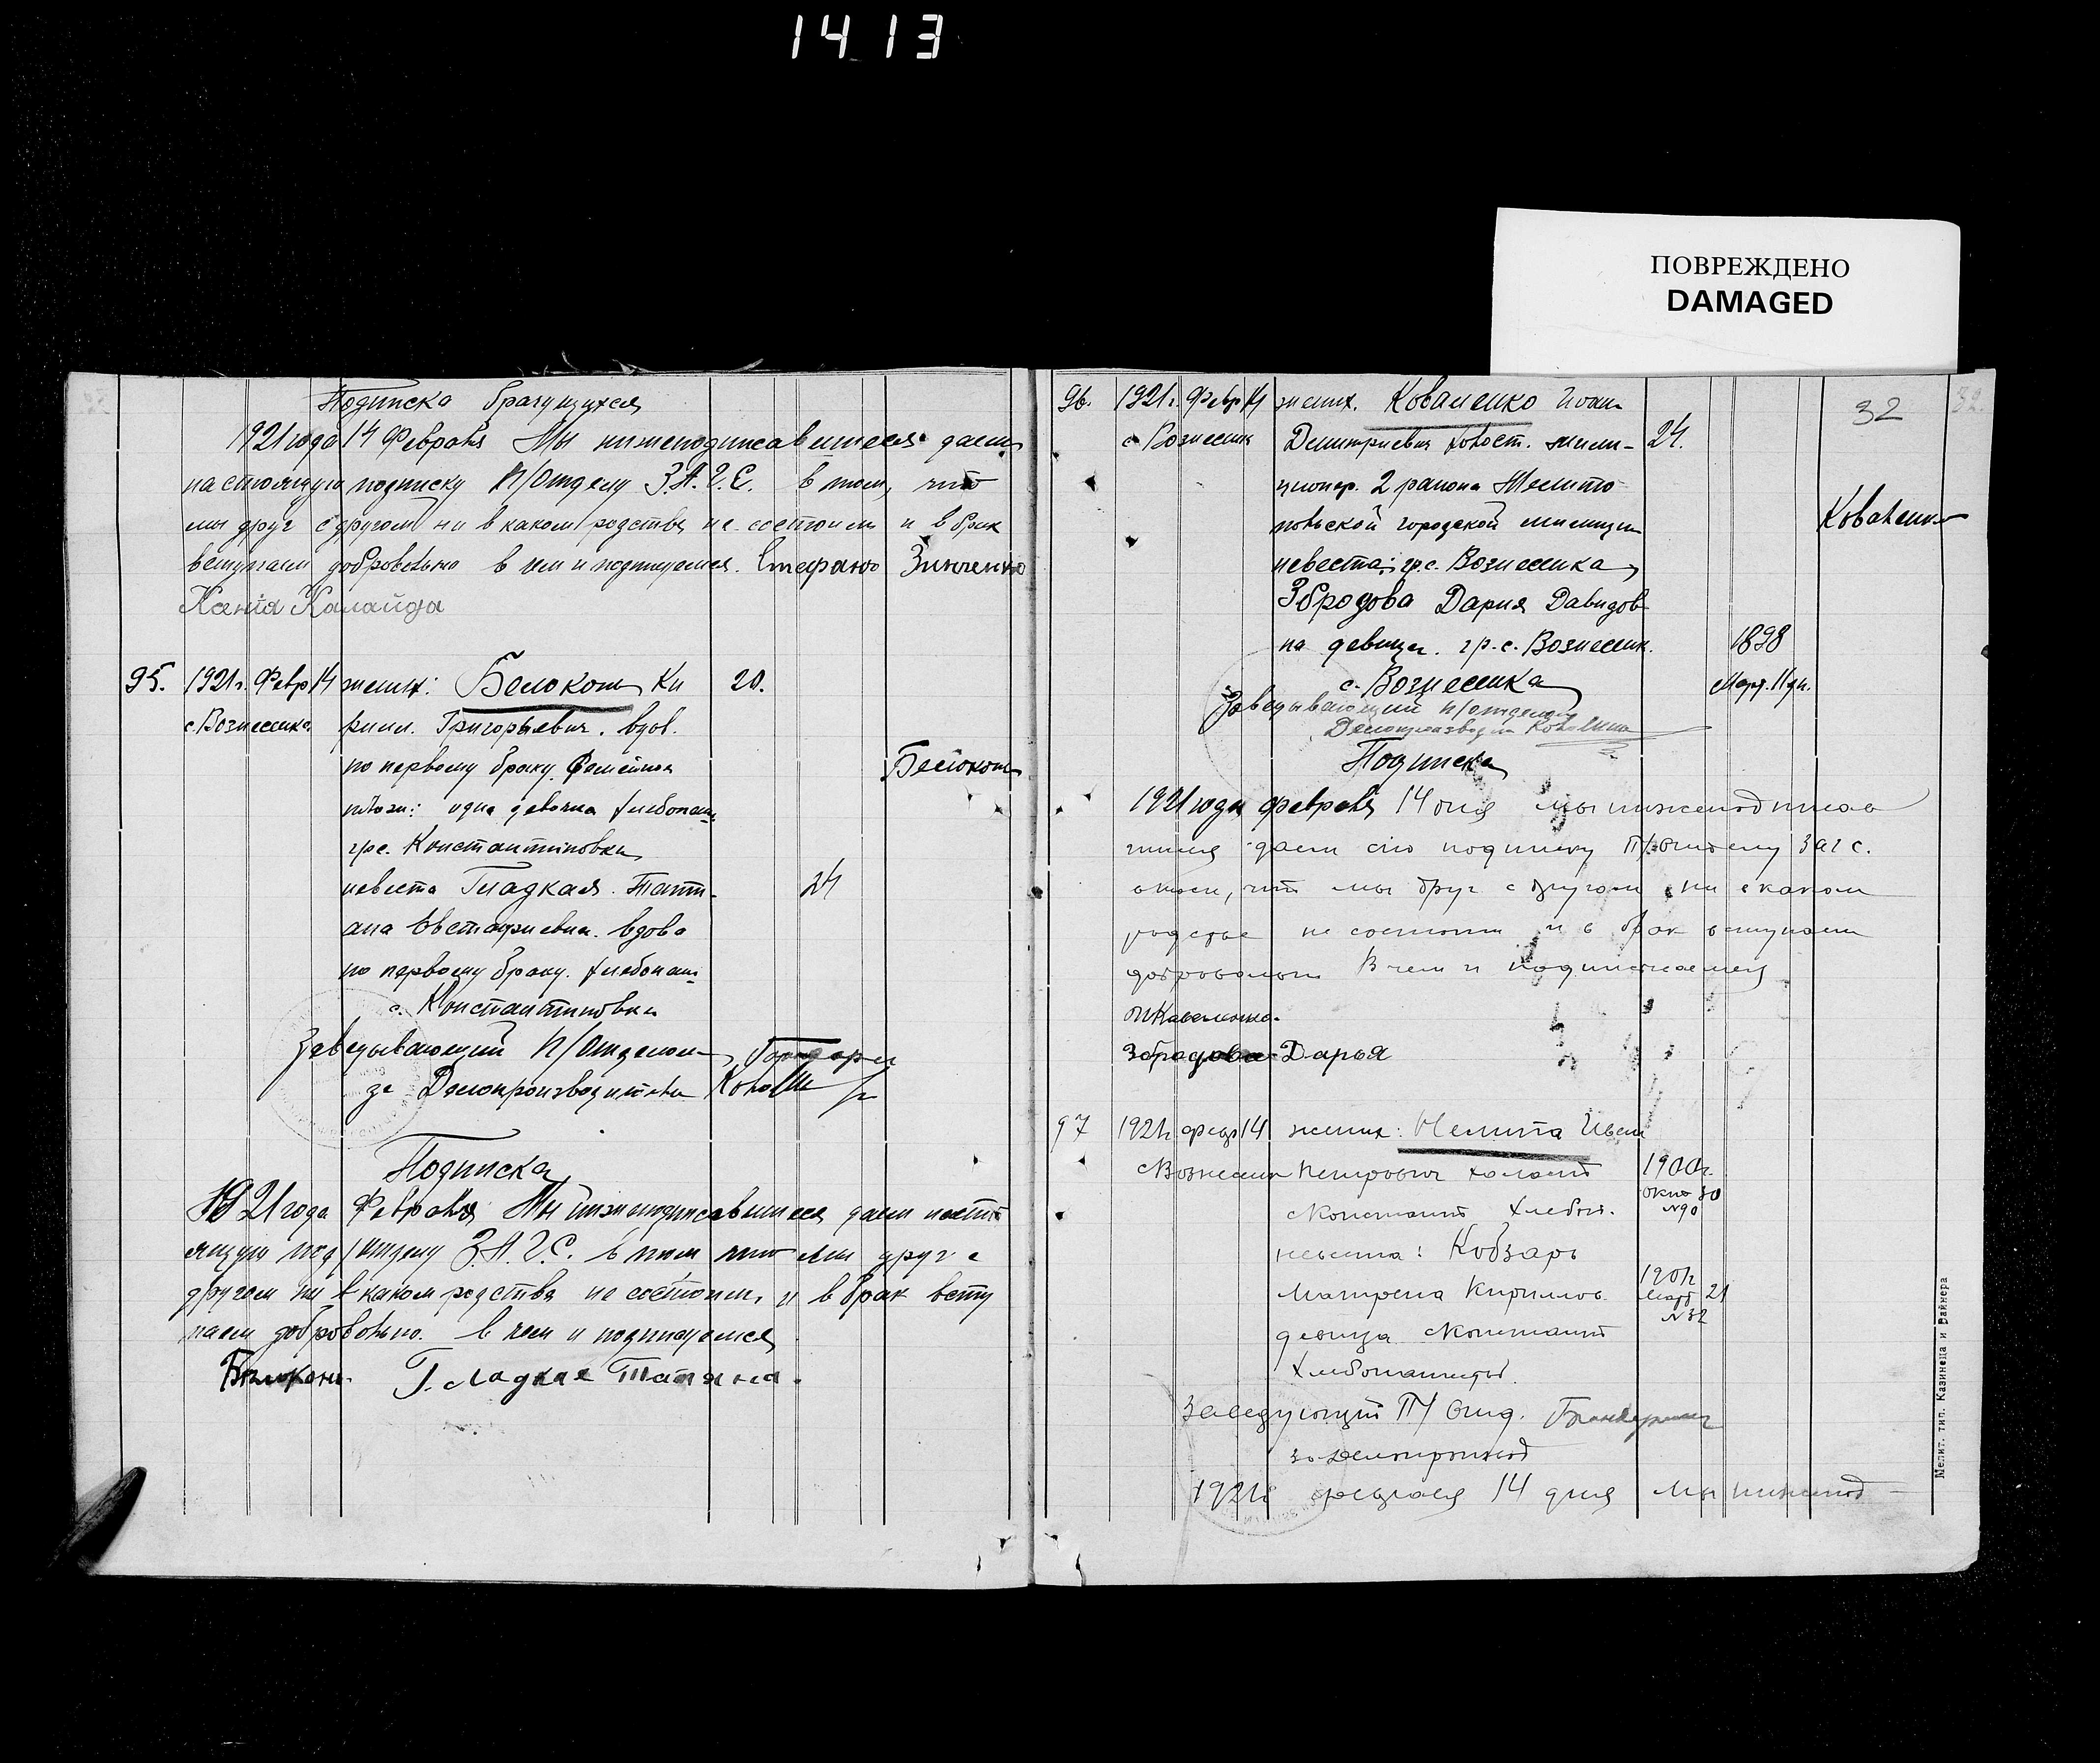 1413
ПОВРЕЖДЕНО
DAMAGED
Подписка брачущихся
1921 года 14 Февраля Мы нижеподписавшиеся даем
настоящую подписку П/Отделу З.А.Г.С. в том, что
мы друг с другом ни в каком родстве не состоим и в брак
вступаем добровольно в чем и подписуемся. Зинченко
Ксенія Калайда
95. 1921 г. Февр 14 жених: Белоконь Ки 20.
с. Вознесенка рилл. Григорьевич. вдов.
по первому браку. Семейное Белоконь
полож: одна девочка хлебопаш.
гр. с. Константиновки
невеста Гладкая Тати- 24
ана Евстафиевна. вдова
по первому браку. хлебопаш.
с. Константиновки
Заведывающий П/Отделом
за Делопроизводителя
Подписка
1921 года Февраля Мы нижеподписавшиеся даем насто
ящую под/отделу З.А.Г.С. в том что мы друг с
другом ни в каком родстве не состоим, и в брак всту
паем добровольно. в чем и подписуемся
Белоконь Гладкая Татьяна.
96. 1921 г. Февр 14 жених. Коваленко Иоан 32
с. Вознесенк Димитриевич холост. мили- 24.
ционер. 2 района Мелито
польской городской милиции Коваленко
невеста: гр. с. Вознесенка
Збродова Дария Давидов
на девица. гр. с. Вознесенк. 1898
с. Вознесенка Март. 11 дн.
Заведывающий П/отделом
Делопроизвод
Подписка
1921 года февраля 14 дня мы нижеподписав
шиеся даем сию подписку П/отделу Загс.
в том, что мы друг с другом ни в каком
родстве не состоим и в брак вступаем
добровольно В чем и подписываемся
Коваленко.
Збродова Дарья
97 1921 г. февр 14 жених: Иван
с Вознесен Петрович холост 1900 г.
с Констант хлебоп. 30 №90
невеста: Кобзарь
Матрена Кириллов. 1901 Март 21 №32
девица с Констант
хлебопашцы.
Заведующий П/Отд.
за Делопроизвод
1921 г. февраля 14 дня мы нижепод-
Мелит. тип. Казинеца и Вайнера